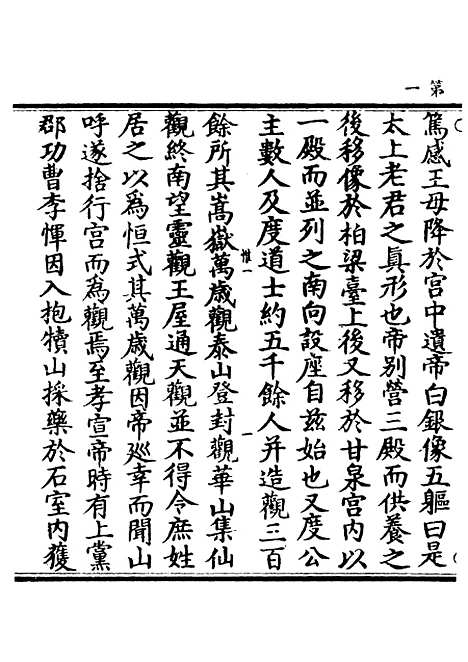 第一
篤感王母降於宫中遺帝白銀像五軀曰是
太上老君之真形也帝別營三殿而供養之
後移像於柏梁臺上後又移於甘泉宫内以
一殿而並列之南向設座自兹始也又度公
主數人及度道士約五千餘人并造觀三百
惟一
一
餘所其嵩嶽萬歲觀泰山登封觀華山集仙
觀終南望靈觀王屋通天觀並不得令庶姓
居之以為恒式其萬歲觀因帝巡幸而聞山
呼遂捨行宫而為觀焉至孝宣帝時有上黨
郡功曹李惲因入抱犢山採藥於石室内獲